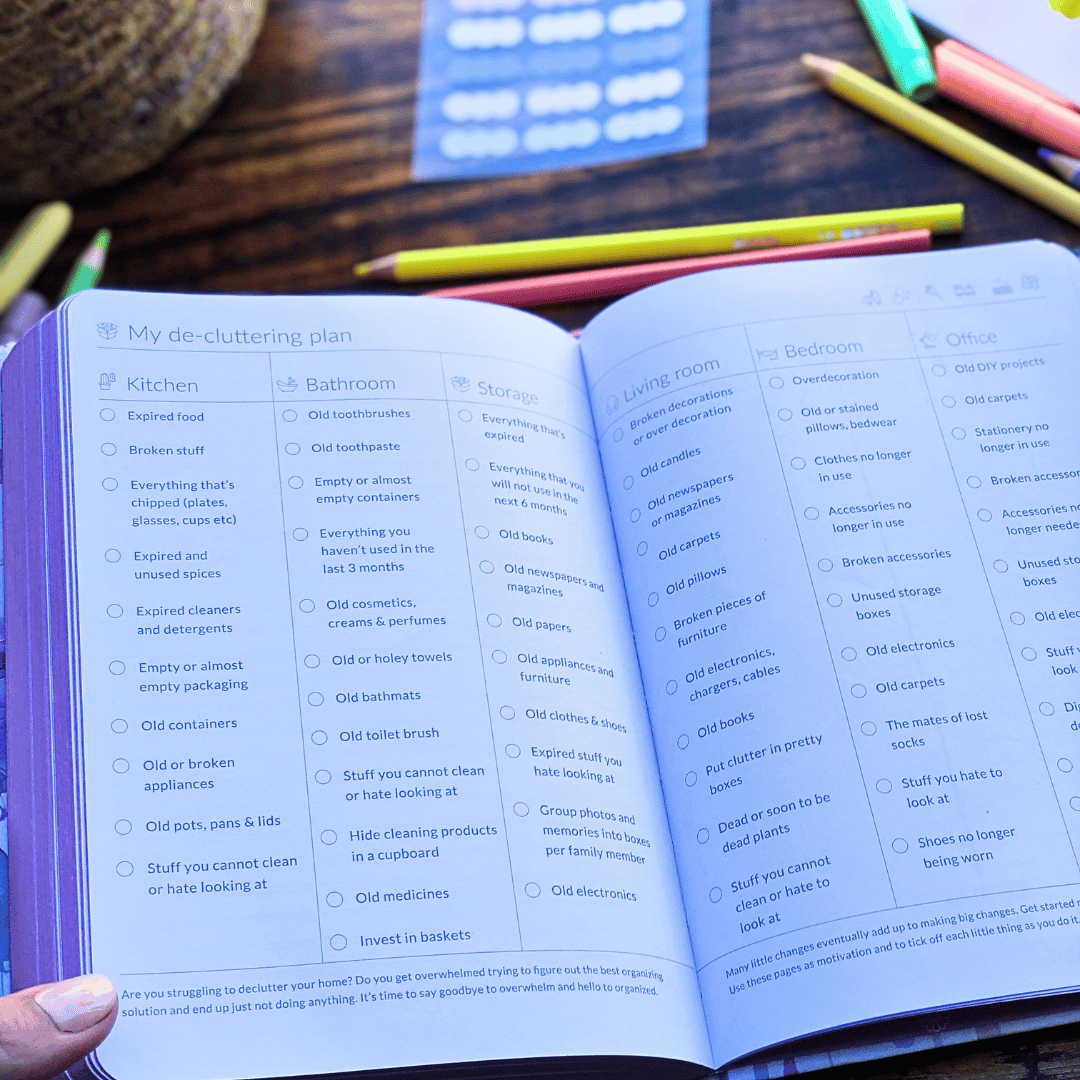 My de-cluttering plan
Kitchen
Expired food
Broken stuff
Everything that's
chipped (plates,
glasses, cups etc)
Expired and
unused spices
Expired cleaners
and detergents
Empty or almost
empty packaging
Old containers
Old or broken
appliances
Old pots, pans & lids
Stuff you cannot clean
or hate looking at
Bathroom
Old toothbrushes
Old toothpaste
Empty or almost
empty containers
Everything you
haven't used in the
last 3 months
Old cosmetics,
creams & perfumes
Old or holey towels
Old bathmats
Old toilet brush
Stuff you cannot clean
or hate looking at
Hide cleaning products
in a cupboard
Old medicines
Invest in baskets
Storage
Everything that's
expired
Everything that you
will not use in the
next 6 months
Old books
Old newspapers and
magazines
Old papers
Old appliances and
furniture
Old clothes & shoes
Expired stuff you
hate looking at
Group photos and
memories into boxes
per family member
Old electronics
Are you struggling to declutter your home? Do you get overwhelmed trying to figure out the best organizing
solution and end up just not doing anything. It's time to say goodbye to overwhelm and hello to organized.
Living room
Broken decorations
or over decoration
Old candles
Old newspapers
or magazines
Old carpets
Old pillows
Broken pieces of
furniture
Old electronics,
chargers, cables
Old books
Put clutter in pretty
boxes
Dead or soon to be
dead plants
Stuff you cannot
clean or hate to
look at
Bedroom
Overdecoration
Old or stained
pillows, bedwear
Clothes no longer
in use
Accessories no
longer in use
Broken accessories
Unused storage
boxes
Old electronics
Old carpets
The mates of lost
socks
Stuff you hate to
look at
Shoes no longer
being worn
Office
Old DIY projects
Old carpets
Stationery no
longer in use
Broken accessor
Accessories no
longer neede
Unused sto
boxes
Old elec
Stuff
look
Di
d
Many little changes eventually add up to making big changes. Get started
Use these pages as motivation and to tick off each little thing as you do it.